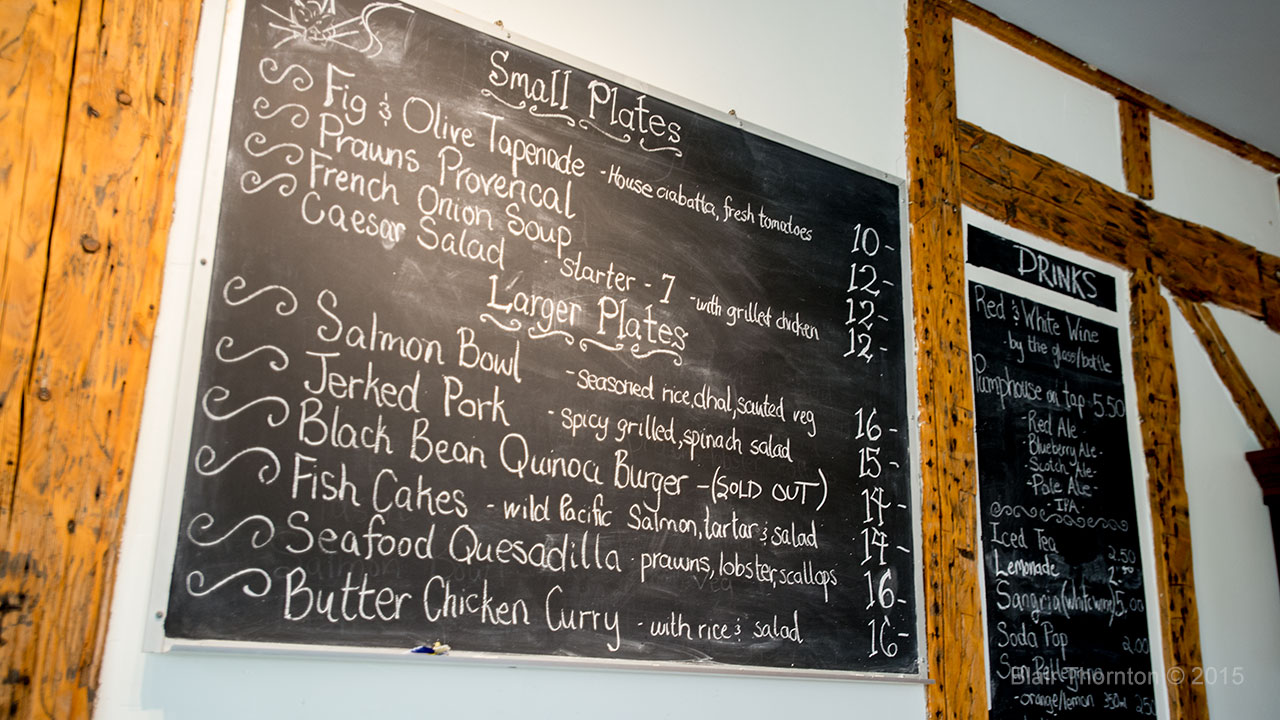 Small Plates
Fig & Olive Tapenade - House ciabatta, fresh tomatoes 10-
Prawns Provencal 12-
French Onion Soup · starter - 7 12-
Caesar Salad - with grilled chicken 12-
Larger Plates
Salmon Bowl - seasoned rice, dhal, sauted veg 16-
Jerked Pork - spicy grilled, spinach salad 15-
Black Bean Quinoa Burger - (SOLD OUT) 14-
Fish Cakes - wild Pacific Salmon, tartar & salad 14-
Seafood Quesadilla · prawns, lobster, scallops 16-
Butter Chicken Curry - with rice & salad 16-
DRINKS
Red & White Wine
- by the glass/bottle
Pumphouse on tap 5.50
- Red Ale -
- Blueberry Ale -
- Scotch Ale -
- Pale Ale -
- IPA -
Iced Tea 2.50
Lemonade
Sangria (white wine) 5.00
Soda Pop 2.00
San Pellegrino
- orange/lemon 350ml 2.50
Blair Thornton © 2015